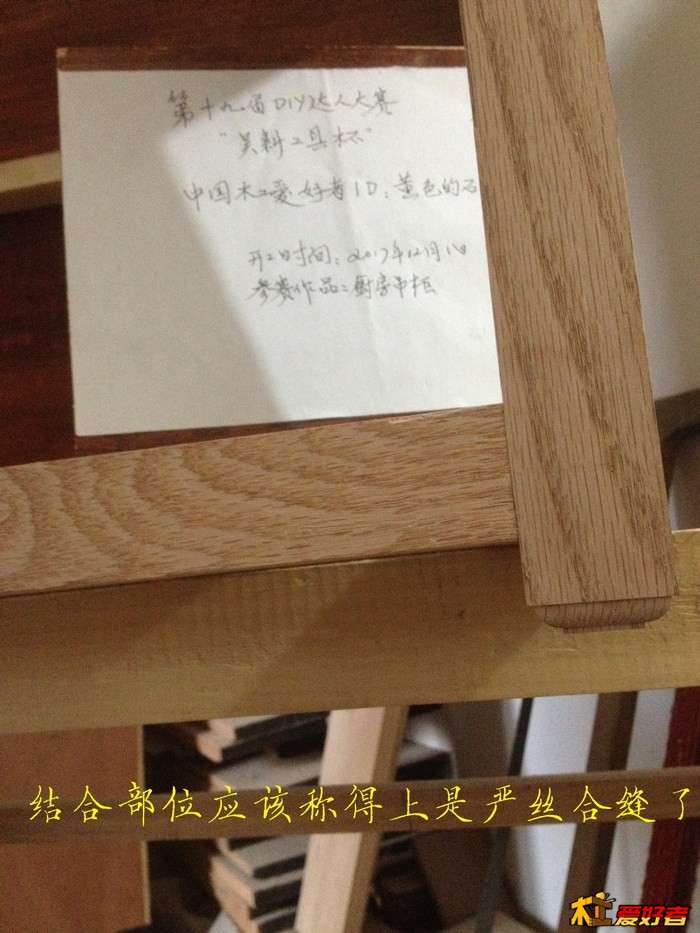 第十九届DIY达人大赛
"美耕工具杯"
中国木工爱好者ID:黄色的石
开工时间:2017年12月1日
参赛作品:厨房吊柜
结合部位应该称得上是严丝合缝了
木工爱好者